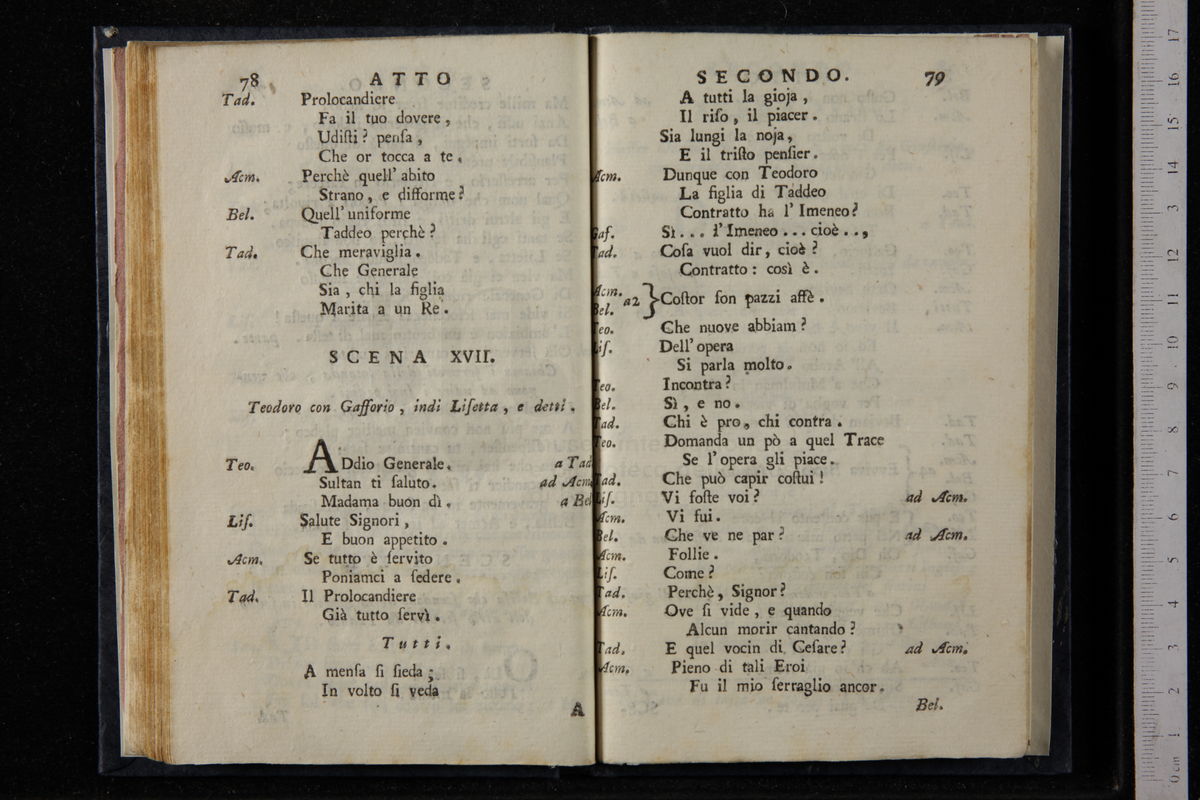 78 ATTO
Tad. Prolocandiere
Fa il tuo dovere,
Udiſti? penſa,
Che or tocca a te.
Acm. Perchè quell' abito
Strano, e difforme?
Bel. Quell' uniforme
Taddeo perchè?
Tad. Che meraviglia.
Che Generale
Sia, chi la figlia
Marita a un Re.
SCENA XVII.
Teodoro con Gafforio, indi Liſetta, e detti.
Teo. ADdio Generale. a Tad
Sultan ti ſaluto. ad Acm
Madama buon dì. a Bel
Liſ. Salute Signori,
E buon appetito.
Acm. Se tutto è ſervito
Poniamci a ſedere.
Tad. Il Prolocandiere
Già tutto ſervì.
Tutti.
A menſa ſi ſieda;
In volto ſi veda
A
SECONDO. 79
A tutti la gioja,
Il riſo, il piacer.
Sia lungi la noja,
E il triſto penſier.
Acm. Dunque con Teodoro
La figlia di Taddeo
Contratto ha l' Imeneo?
Gaf. Sì... l' Imeneo... cioè...,
Tad. Coſa vuol dir, cioè?
Contratto: così è.
Acm.
Bel. a2 } Coſtor ſon pazzi affè.
Teo. Che nuove abbiam?
Liſ. Dell' opera
Si parla molto.
Teo. Incontra?
Bel. Sì, e no.
Tad. Chi è pro, chi contra.
Teo. Domanda un pò a quel Trace
Se l' opera gli piace.
Tad. Che può capir coſtui!
Liſ. Vi foſte voi? ad Acm.
Acm. Vi fui.
Bel. Che ve ne par? ad Acm.
Acm. Follie.
Liſ. Come?
Tad. Perchè, Signor?
Acm. Ove ſi vide, e quando
Alcun morir cantando?
Tad. E quel vocin di Ceſare? ad Acm.
Acm. Pieno di tali Eroi
Fu il mio ſerraglio ancor.
Bel.
0 cm 1 2 3 4 5 6 7 8 9 10 11 12 13 14 15 16 17